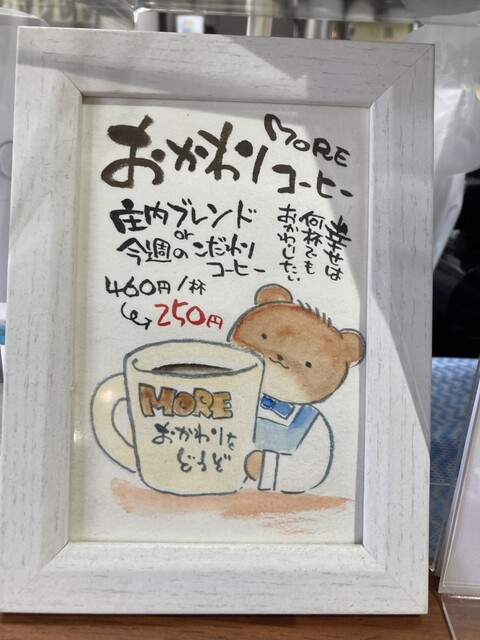 おかわり MORE
コーヒー
幸せは
何杯でも
おかわりしたい
庄内ブレンド
or
今週のこだわり
コーヒー
460円/杯
250円
MORE
おかわりを
どうぞ